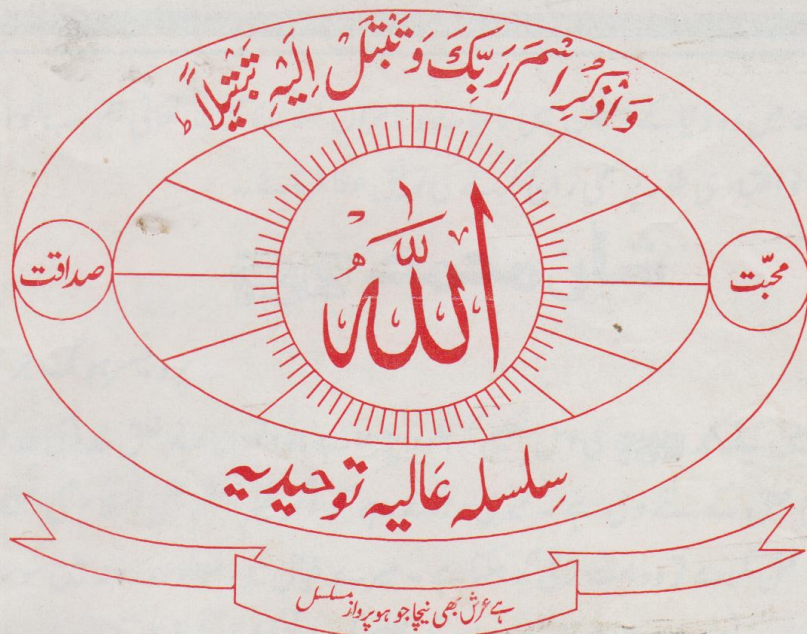 وَاذْكُرِ اسْمَ رَبِّكَ وَتَبَتَّلْ اِلَيْهِ تَبْتِيْلًا ط
اللّٰهُ
محبّت
صداقت
سِلسلہ عَالیہ توحیدیہ
ہے عرش بھی نیچا جو ہو پرواز مسلسل